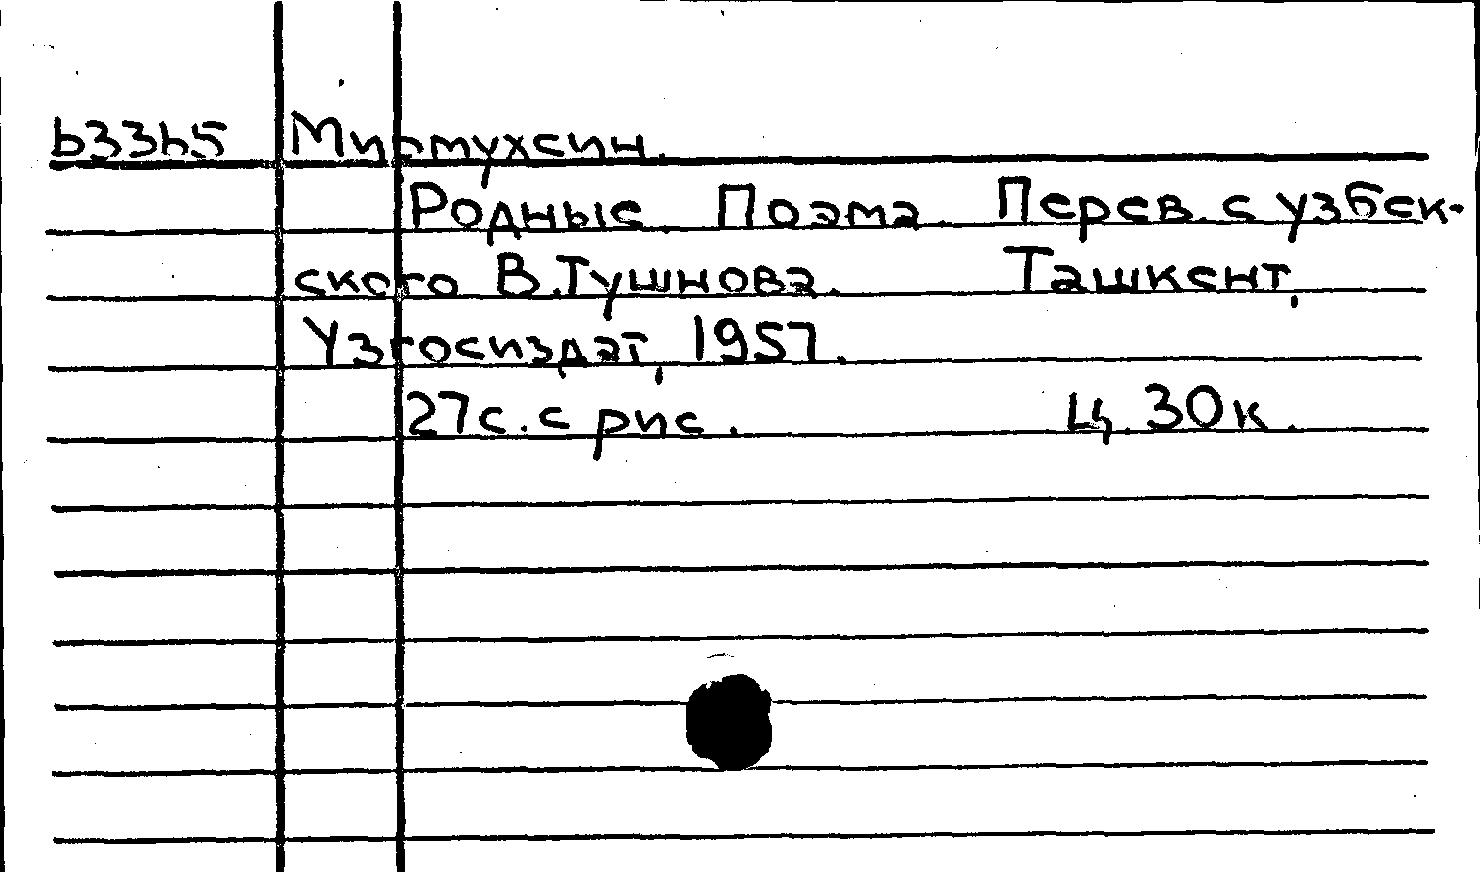 b33h5 Мирмухсин.
Родные. Поэма. Перев. с узбек-
ского В.Тушнова. Ташкент,
Узгосиздат, 1957.
27с. с рис. Ц. 30к.